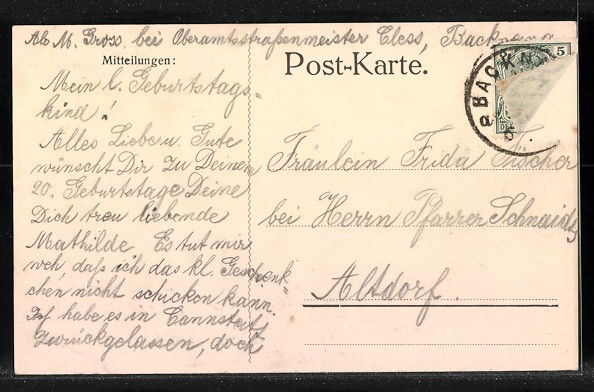 Abs. M. Gross bei Oberamtsstraßenmeister Eless, Backnang
Mitteilungen:
Post-Karte.
5
BACKN
Mein l. Geburtstags-
kind!
Alles Liebe u. Gute
wünscht Dir zu Deinem
20. Geburtstage Deine
Dich treu liebende
Mathilde. Es tut mir
weh, daß ich das kl. Geschenk-
chen nicht schicken kann.
habe es in Cannstatt
zurückgelassen, doch
Fräulein Frida Fischer
bei Herrn Pfarrer Schnaidt
Altdorf.